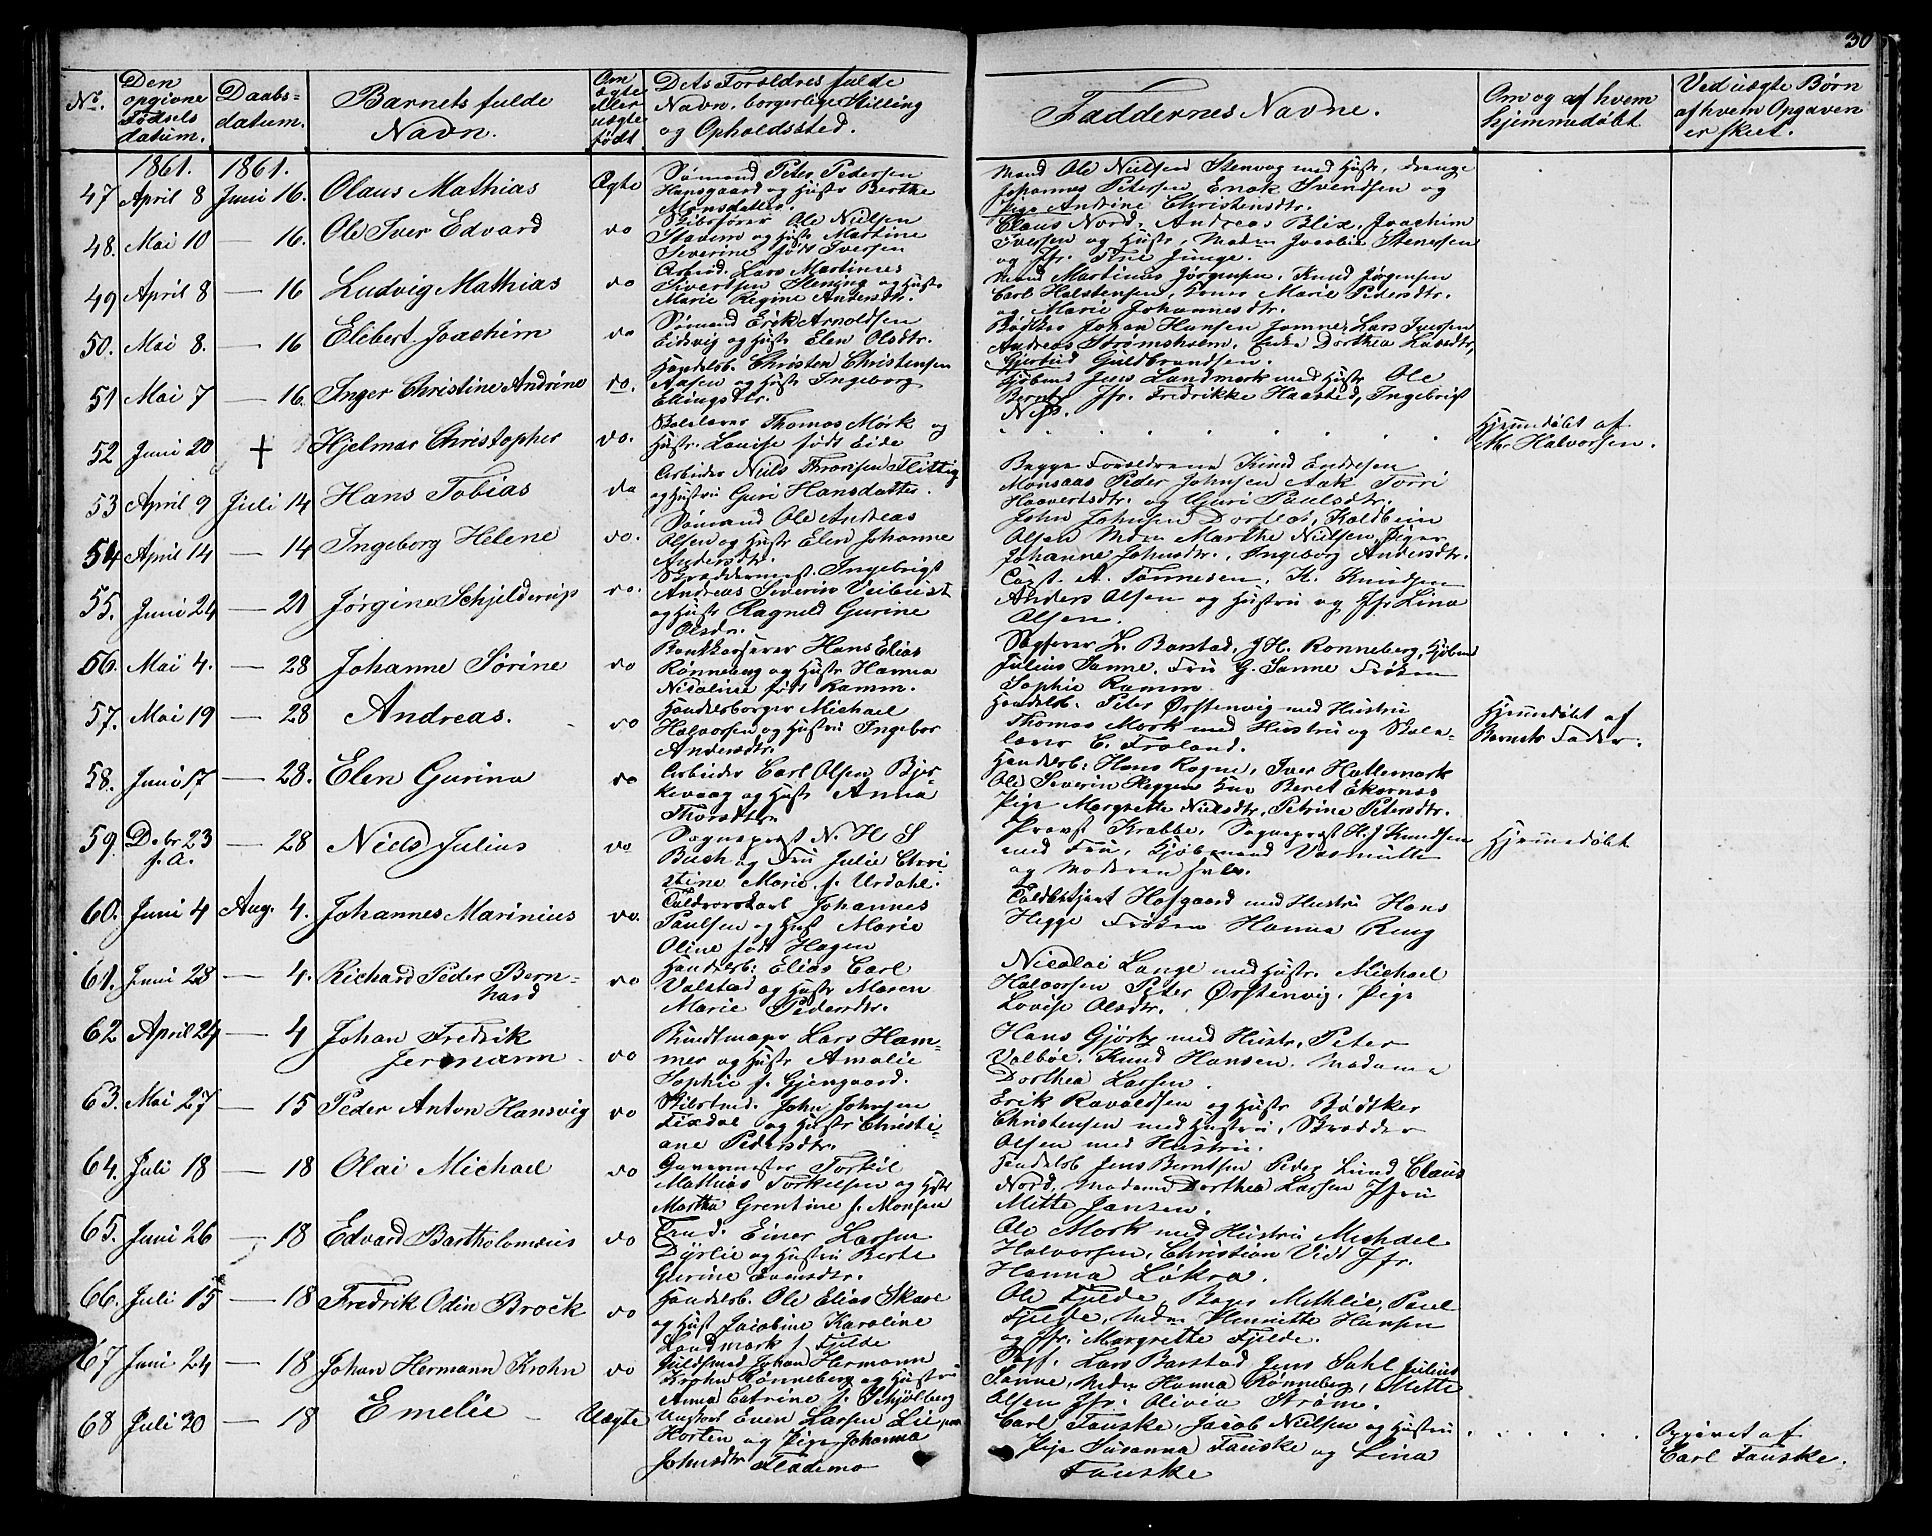 30
No.
Den opgivne Fødsels datum.
Daabs-datum.
Barnets fulde Navn.
Om ægte eller uægte født
Dets Forældres fulde Navn, borgerlige Stilling og Opholdssted.
Faddernes Navne.
Om og af hvem hjemmedøbt
Ved uægte Børn af hvem Opgaven er skeet.
1861. 1861.
47 April 8 Juni 16. Olaus Mathias Ægte
Sømand Peter Pedersen
Hansgaard og Hustr Berthe
Monsdatter.
Mand Ole Nielsen Stenvog med Hustr, Drenge
Johannes Petersen, Enok Svendsen og
Pige Andrine Christensdtr.
48. Mai 10 — 16. Ole Iver Edvard do
Ole Nielsen
Stavem og Hustr Martine
Severine født Iversen
Claus Nord, Andreas Blix, Joachim
Iversen og Hustr, Madm Jacobia Stenersen
og Jfr. Trine Junge.
49 April 8 — 16 Ludvig Mathias do
Arbeid. Lars Martinus
Sivertsen og Hustr
Marie Regine Andersdtr.
Mand Martinus Jørgensen, Knud Jørgensen
Carl Halstensen, Koner Marie Pedersdtr.
og Marie Johannesdtr.
50. Mai 8. — 16 Elibert Joachim do
Sømand Erik Arnoldsen
Eidsvig og Hustr Elen Olsdtr.
Bødker Johan Hansen Jomne, Lars Iversen
Andreas Strømsholm, Enke Dorthea Larsdtr,
Gjertrud Guldbrandsen.
51 Mai 7 — 16. Inger Christine Andrine do.
Handelsb. Christen Christensen
Aasen og Hustr Ingeborg
Ellingsdtr.
Kjøbmd Jens Landmark med Hustr Ole
Berntz Jfr. Fredrikke Haasted, Ingebrigt
52 Juni 20 + Hjelmar Christopher do.
Thomas Mork og
Hustr. Louise født Eide
Hjemdøbt af
Mr Halvorsen.
53 April 9 Juli 14 Hans Tobias do
Arbeider Niels Thronsen Flittig
og Hustru Guri Hansdatter.
Begge Forældrene Knud Endresen
Monsaas Peder Johnsen Aak Torri
Haavertsdtr. og Guri Paulsdtr.
54 April 14 — 14 Ingeborg Helene do.
Sømand Ole Andreas
Olsen og Hustr Elen Johanne
Andersdtr.
John Johnsen Dorlos, Koldbein
Olsen Mdm Marthe Nielsen, Piger
Johanne Johnsdtr., Ingeborg Andersdtr.
55. Juni 24 — 21 Jørgine Schjelderup do.
Skræddermest. Ingebrigt
Andreas Severin Veibust
og Hustr Ragnild Gurine
Olsdr.
Capt. A. Tønnesen, K. Knudsen
Anders Olsen og Hustru og Jfr Lina
Olsen.
56. Mai 4. — 28 Johanne Sørine do
Bankkasserer Hans Elias
Rønneberg og Hustr Hanna
Nicoline født Ramm.
Sagfører L. Barstad, J. H. Ronneberg, Kjøbmd
Julius Sanne, Fru G. Sanne Frøken
Sophie Ramm.
57. Mai 19 — 28 Andreas. do
Handelsborger Michael
Halvorsen og Hustru Ingebor
Andersdtr.
Handelsb. Peter Ørstenvig med Hustru
Thomas Mork med Hustru og Skole-
lærer C. Froland.
Hjemdøbt af
Barnets Fader.
58. Juni 17 — 28. Elen Gurina do
Arbeider Carl Olsen Bjer-
kevaag og Hustr Anna
Thorsdtr.
Handelsb. Hans Rogne, Iver Hattemark
Ole Severin Heggem Kone Beret Ekornæs
Pige Margrethe Nielsdtr, Petrine Petersdtr.
59. Debr 23 f. a. — 28 Niels Julius do
Sognepræst N. H. S
Buch og Fru Julie Chri
stine Marie f. Urdahl.
Provst Krabbe, Sognepræst H. J Knudsen
med Fru, Kjøbmand
og Moderen selv.
Hjemmedøbt
60. Juni 4 Aug. 4. Johannes Marinius do.
Toldroerskarl Johannes
Paulsen og Hust Marie
Oline født Hagen
Hofgaard med Hustru Hans
Hegge Frøken Hanna Ring
61. Juni 28 — 4. Richard Peder Bern-
hard do
Handelsb. Elias Carl
Valstad og Hustr Maren
Marie Pedersdtr.
Nicolai Lange med Hustr. Michael
Halvorsen Peter Ørstenvig, Pige
Lovise Olsdtr.
62 April 24 — 4 Johan Fredrik
Jermann do
Bundtmager Lars Ham-
mer og Hustr Amalie
Sophie f. Gjengaard.
Hans Gjørtz med Hustr, Peter
Valbøe, Knud Hansen, Madame
Dorthea Larsen.
63. Mai 27 — 15 Peder Anton Hansvig do
John Johnsen
Fixdal og Hustr Christi-
ane Pedersdtr.
Erik Ravaldsen og Hustr Bødtker
Christensen med Hustru, Skrædder
Olsen med Hustru.
64. Juli 18 — 18 Olai Michael do
Garvermester Torkil
Mathias Torkelsen og Hustr
Martha Grentine f. Monsen
Handelsb Jens Berntsen Peder Lund Claus
Nord, Madame Dorthea Larsen Jfru
Mitte Jansen.
65. Juni 26 — 18 Edvard Bartholomæus do
Einer Larsen
Dyrlie og Hustru Berte
Gurine Evensdtr.
Ole Mork med Hustru Michael
Halvorsen, Christian Vidt Jfr.
Hanna Løkra.
66. Juli 15 — 18 Fredrik Odin Brock do
Handelsb. Ole Elias Skare
og Hust Jacobine Karoline
Landmark f Fjelde
Ole Fjelde, Bager Methlie, Paul
Fjelde, Mdm Henriette Hansen
og Jfr. Margrette Fjelde.
67 Juni 24 — 18 Johan Hermann Krohn do
Guldsmed Johan Hermann
Krohn Rønneberg og Hustru
Anna Catrine f. Schjølberg
Sagf. Lars Barstad Jens Dahl Julius
Sanne, Mdm Hanna Rønneberg, Mette
Olsen Jfr. Olivia Strøm.
68 Juli 30 — 18 Emelie Uægte
Ungkarl Even Larsen Lie, paa
Horten og Pige Johanna
Johnsdtr Flademo
Carl Fauske, Jacob Nielsen og Hustru
Pige Susanna Fauske og Lina
Fauske
Opgivet af
Carl Fauske.